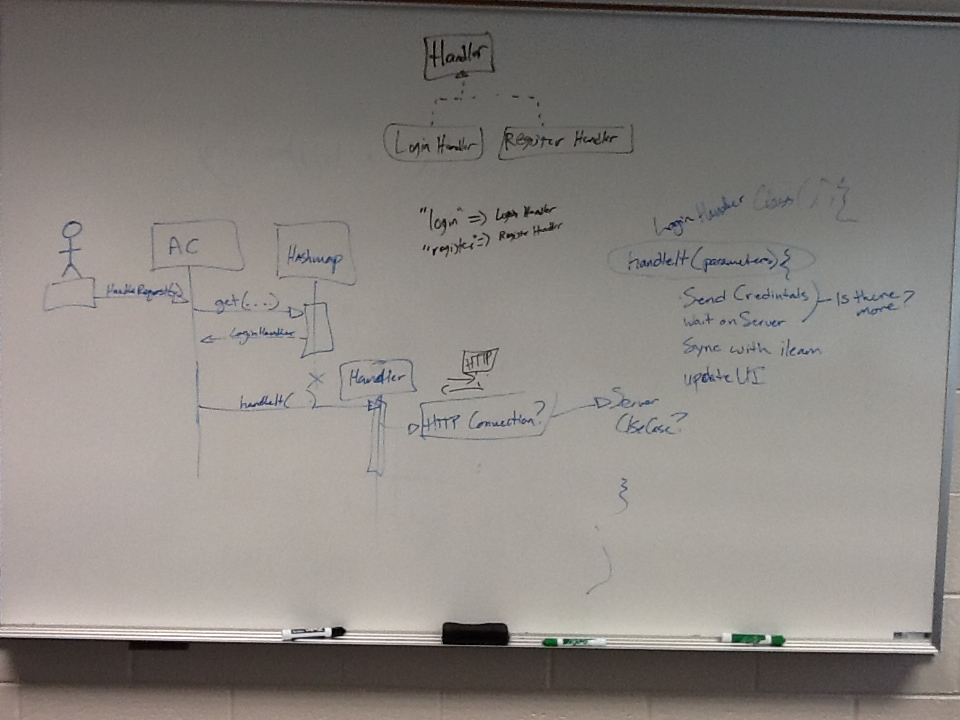 Handler
Login Handler
Register Handler
"login" => Login Handler
"register" => Register Handler
AC
Hashmap
HandleRequest( )
get(....)
LoginHandler
handleIt( )
X
Handler
HTTP
HTTP Connection?
Server
UseCase?
LoginHandler Class( ) {
handleIt(parameters){
Send Credintials
wait on Server
Is there
more?
Sync with ilearn
update UI
}